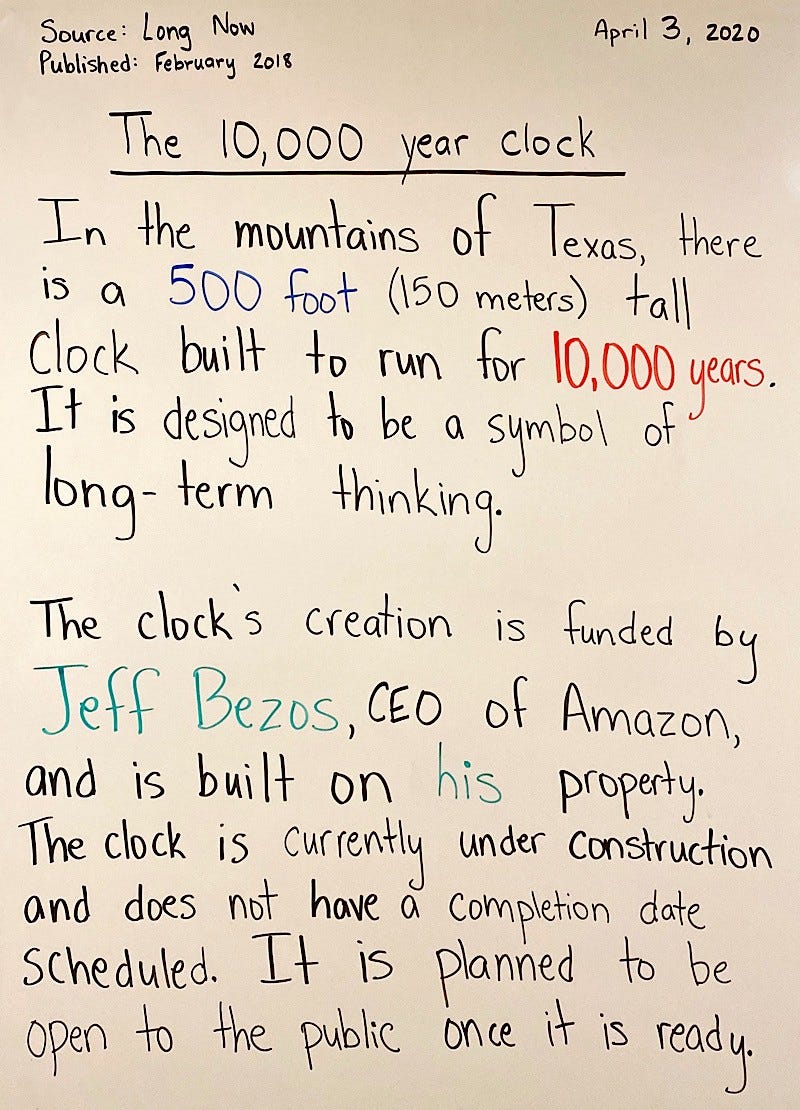 Source: Long Now
April 3, 2020
Published: February 2018
The 10,000 year clock
In the mountains of Texas, there
is a 500 foot (150 meters) tall
clock built to run for 10,000 years.
It is designed to be a symbol of
long-term thinking.
The clock's creation is funded by
Jeff Bezos, CEO of Amazon,
and is built on his property.
The clock is currently under construction
and does not have a completion date
scheduled. It is planned to be
open to the public once it is ready.